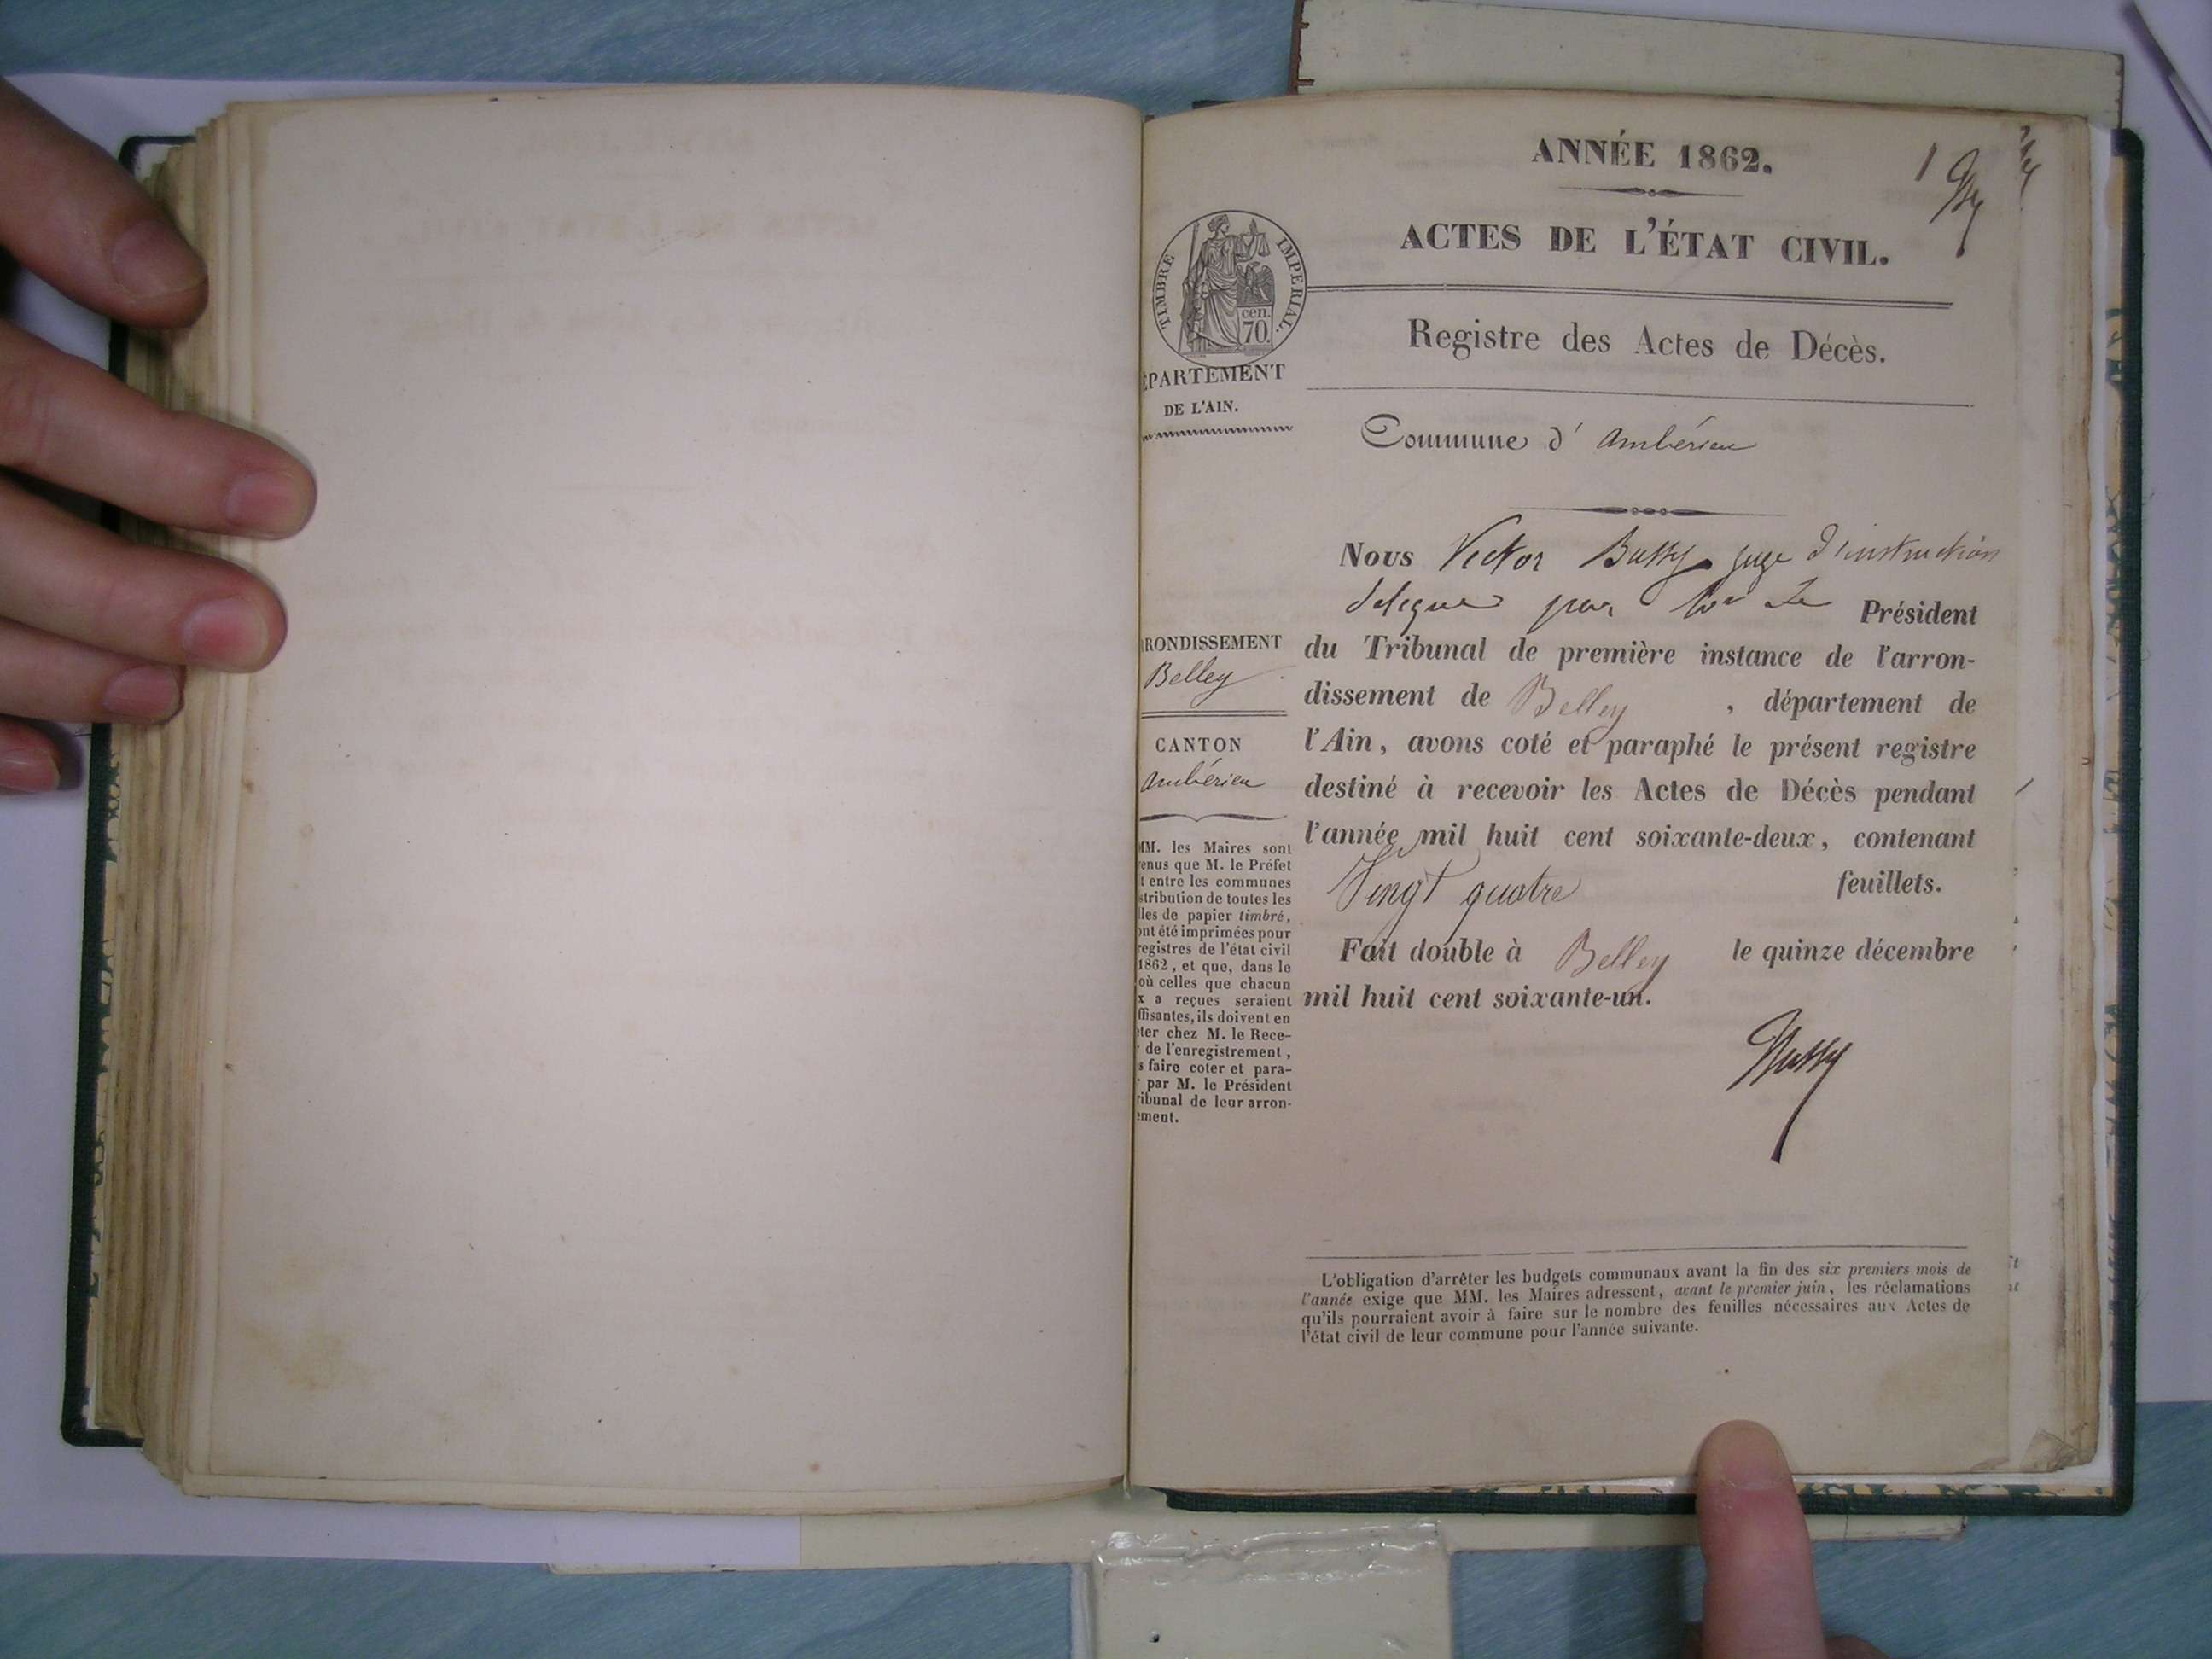 ANNÉE 1862.
1
ACTES DE L'ÉTAT CIVIL.
TIMBRE IMPERIAL.
cen.
70.
Registre des Actes de Décès.
ÉPARTEMENT
DE L'AIN.
Commune d' Ambérieu
Nous Victor Bussy juge d'instruction
délégué par Mr Le Président
du Tribunal de première instance de l'arron-
dissement de Belley , département de
l'Ain, avons coté et paraphé le présent registre
destiné à recevoir les Actes de Décès pendant
l'année mil huit cent soixante-deux, contenant
Vingt quatre feuillets.
Fait double à Belley le quinze décembre
mil huit cent soixante-un.
Bussy
RONDISSEMENT
Belley
CANTON
Ambérieu
MM. les Maires sont
enus que M. le Préfet
t entre les communes
stribution de toutes les
lles de papier timbré,
ont été imprimées pour
registres de l'état civil
1862, et que, dans le
où celles que chacun
x a reçues seraient
ffisantes, ils doivent en
eter chez M. le Rece-
r de l'enregistrement,
s faire coter et para-
r par M. le Président
ribunal de leur arron-
ement.
L'obligation d'arrêter les budgets communaux avant la fin des six premiers mois de
l'année exige que MM. les Maires adressent, avant le premier juin, les réclamations
qu'ils pourraient avoir à faire sur le nombre des feuilles nécessaires aux Actes de
l'état civil de leur commune pour l'année suivante.